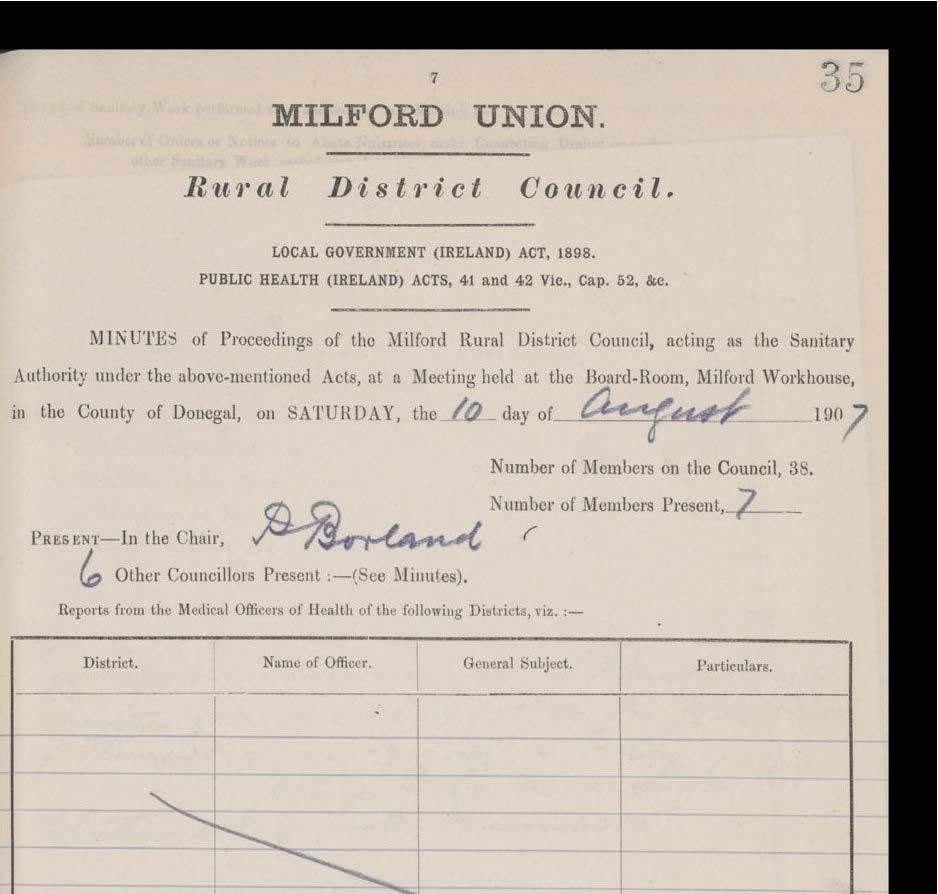 35
7
MILFORD UNION.
Rural District Council.
LOCAL GOVERNMENT (IRELAND) ACT, 1898.
PUBLIC HEALTH (IRELAND) ACTS, 41 and 42 Vic., Cap. 52, &c.
MINUTES of Proceedings of the Milford Rural District Council, acting as the Sanitary
Authority under the above-mentioned Acts, at a Meeting held at the Board-Room, Milford Workhouse,
in the County of Donegal, on SATURDAY, the 10 day of August 1907
Number of Members on the Council, 38.
Number of Members Present, 7
PRESENT—In the Chair, D Borland
6 Other Councillors Present :—(See Minutes).
Reports from the Medical Officers of Health of the following Districts, viz. :—
District. Name of Officer. General Subject. Particulars.